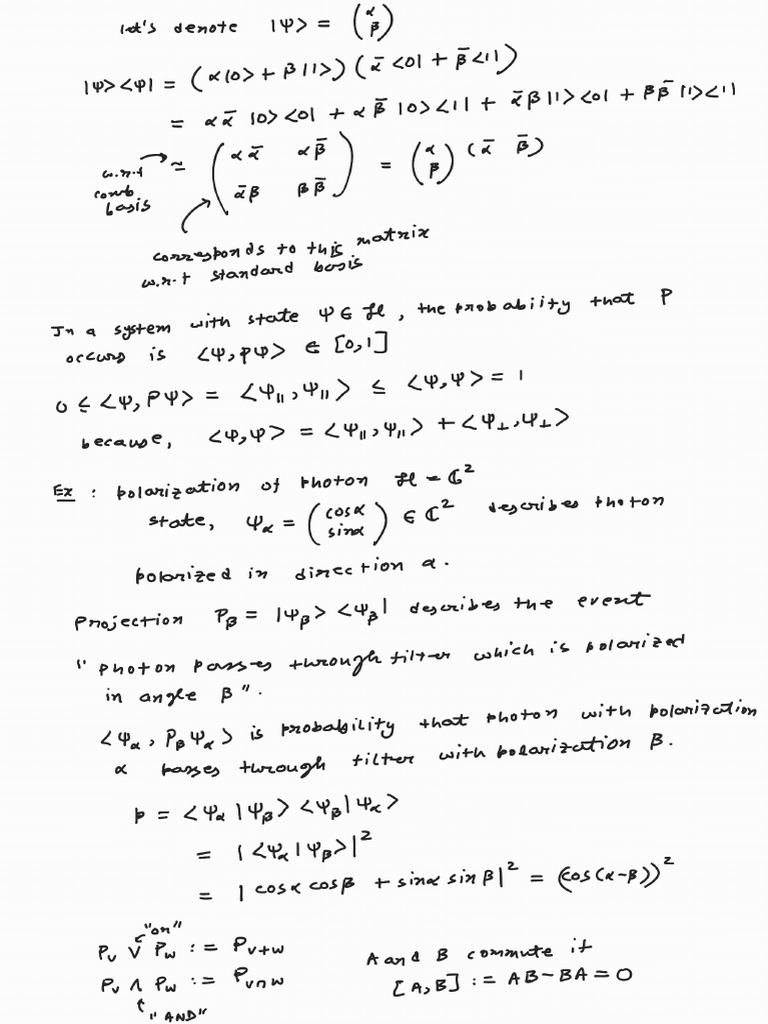 let's denote |ψ> = (α β)
|ψ><ψ| = (α|0> + β|1>) (ᾱ<0| + β̄<1|)
= αᾱ |0><0| + αβ̄ |0><1| + ᾱβ|1><0| + ββ̄ |1><1|
w.r.t comb basis ≃ (αᾱ αβ̄ ᾱβ ββ̄) = (α β) (ᾱ β̄)
corresponds to this matrix
w.r.t standard basis
In a system with state ψ ∈ ℋ, the probabiity that P
occurs is <ψ, Pψ> ∈ [0,1]
0 ≤ <ψ, Pψ> = <ψ∥, ψ∥> ≤ <ψ, ψ> = 1
because, <ψ, ψ> = <ψ∥, ψ∥> + <ψ⊥, ψ⊥>
Ex : polarization of photon ℋ = ℂ²
state, ψ_α = (cosα sinα) ∈ ℂ² describes photon
polarized in direction α.
Projection P_β = |ψ_β> <ψ_β| describes the event
"photon passes through filter which is polarized
in angle β".
<ψ_α, P_β ψ_α> is probability that photon with polarization
α passes through filter with polarization β.
p = <ψ_α|ψ_β> <ψ_β|ψ_α>
= |<ψ_α|ψ_β>|²
= |cosα cosβ + sinα sinβ|² = (cos(α-β))²
"or"
P_v ∨ P_w := P_v+w
P_v ∧ P_w := P_v∩w
"AND"
A and B commute if
[A,B] := AB-BA = 0